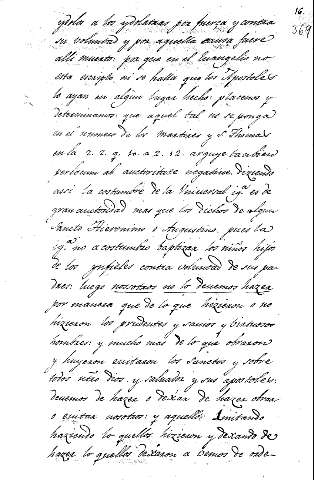 16.
369
ydola a los ydolatras por fuerza y contra
su voluntad y por aquella causa fuere
alli muerto, por que en el Euangelio no
esta escripto ni se halla que los Apostoles
lo ayan en algun lugar hecho; placenos y
determinamos que aqual tal no se ponga
en el numero de los martires y Sº Thomas
en la 2. 2. q. 10. a 2. 12. arguye tambien
per locum ab auctoritate negative, diziendo
assi la costumbre de la Vniversal igª es de
gran auctoridad mas que los dichos de algun
Sancto Hieronimo o Augustino, pues la
igª no acostumbra baptizar los niños hijos
de los ynfieles contra voluntad de sus pa-
dres; luego nosotros no lo devemos hazer
por manera que de lo que hizieron o no
hizieron los prudentes y sanctos y virtuosos
hombres; y mucho mas de lo que obraron
y huyeron evitaron los Sanctos y sobre
todos nr̃o dios, y salvador y sus apostoles;
devemos de hazer o dexar de hazer obrar
o evitar nosotros; y aquellos imitando
haziendo lo quellos hizieron y dexando de
hazer lo quellos dexaron a vemos de orde-